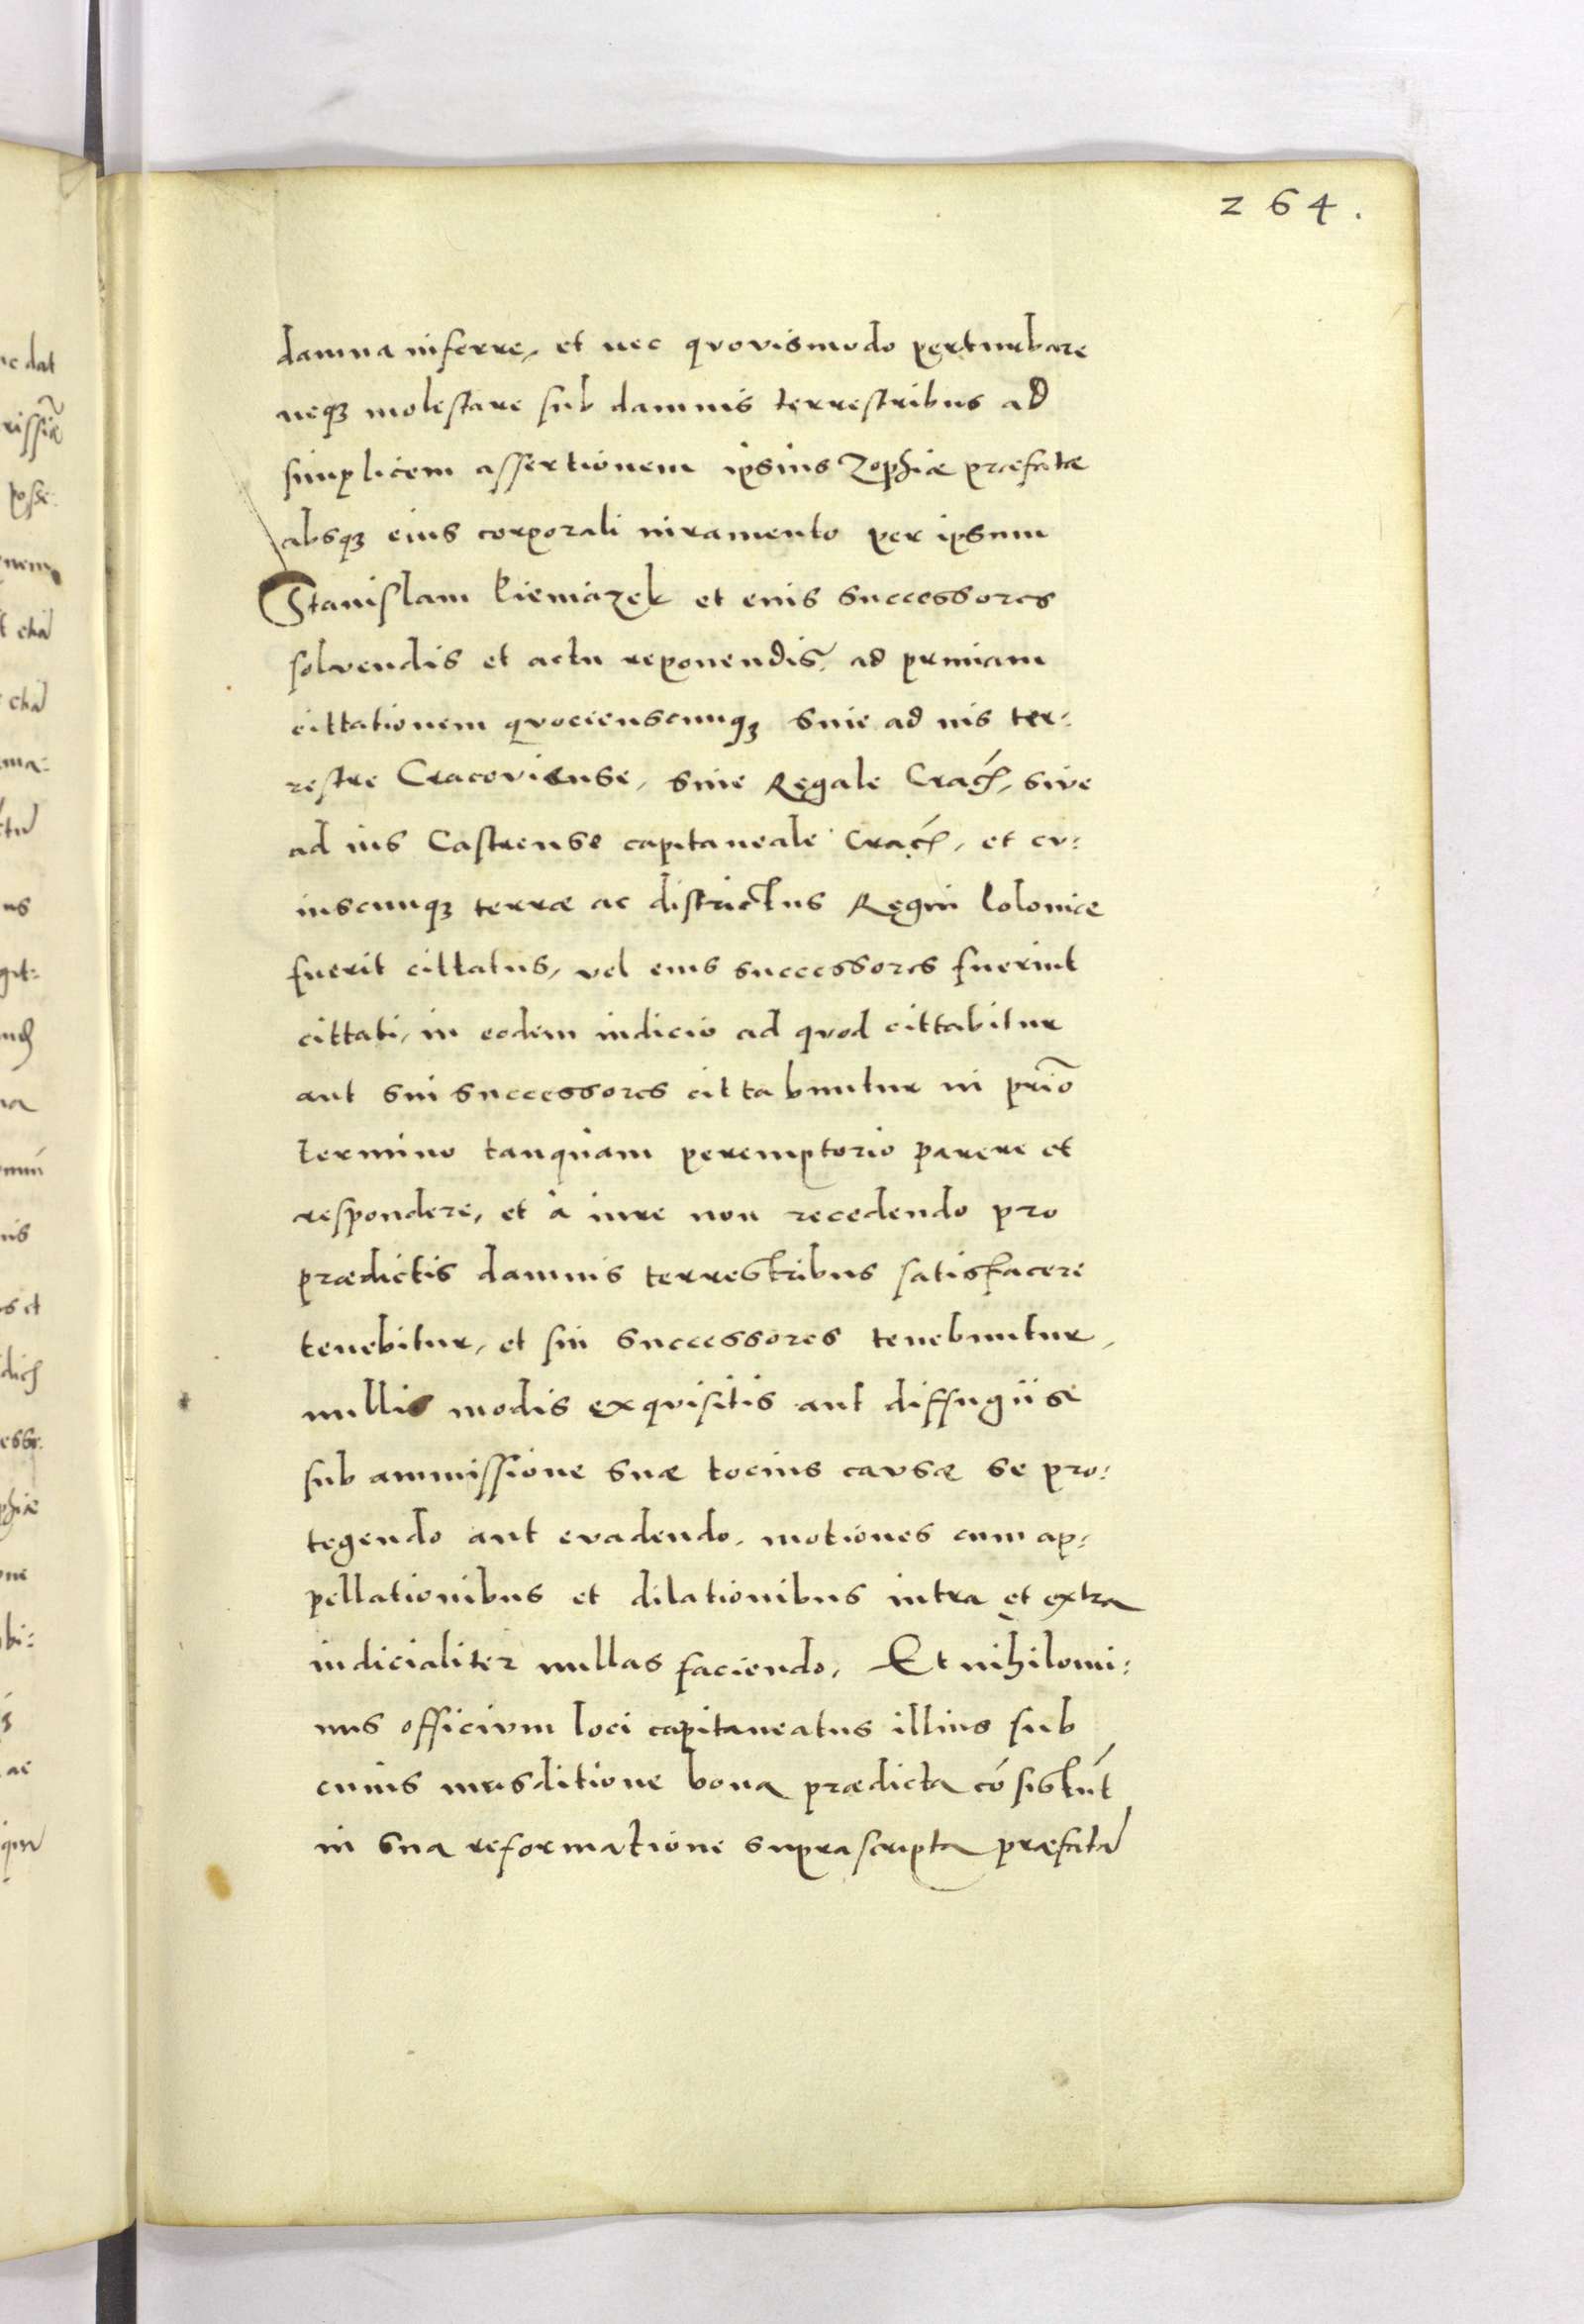 264.
damna inferre, et nec quovismodo perturbare
neqꝫ molestare sub damnis terrestribus ad
simplicem assertionem ipsius Zophiæ præfatæ
absqꝫ eius corporali iuramento per ipsum
Stanislaum et eius successores
solvendis et actu reponendis, ad primam
cittationem quocienscunqꝫ siue ad ius ter:
restre Cracoviense, siue Regale Crach, sive
ad ius Castrense capitaneale Crach, et cu:
iuscunqꝫ terræ ac districtus Regni Poloniæ
fuerit cittatus, vel eius successores fuerint
cittati, in eodem iudicio ad quod cittabitur
aut sui successores cittabuntur in prio
termino tanquam peremptorio parere et
respondere, et à iure non recedendo pro
prædictis damnis terrestribus satisfacere
tenebitur, et sui successores tenebuntur,
nullis modis exquisitis aut diffugiis
sub ammissione suæ tocius causæ se pro:
tegendo aut evadendo, motiones cum ap:
pellationibus et dilationibus intra et extra
iudicialiter nullas faciendo, Et nihilomi:
nus officium loci capitaneatus illius sub
cuius iurisditione bona prædicta cōsistūt
in sua reformatione suprascripta præfata